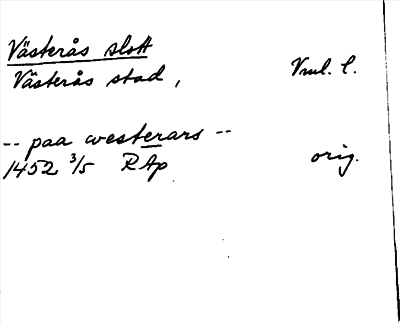 Västerås slott
Västerås stad, Vml. l.
-- paa westerars --
1452 3/5 RAp orig.